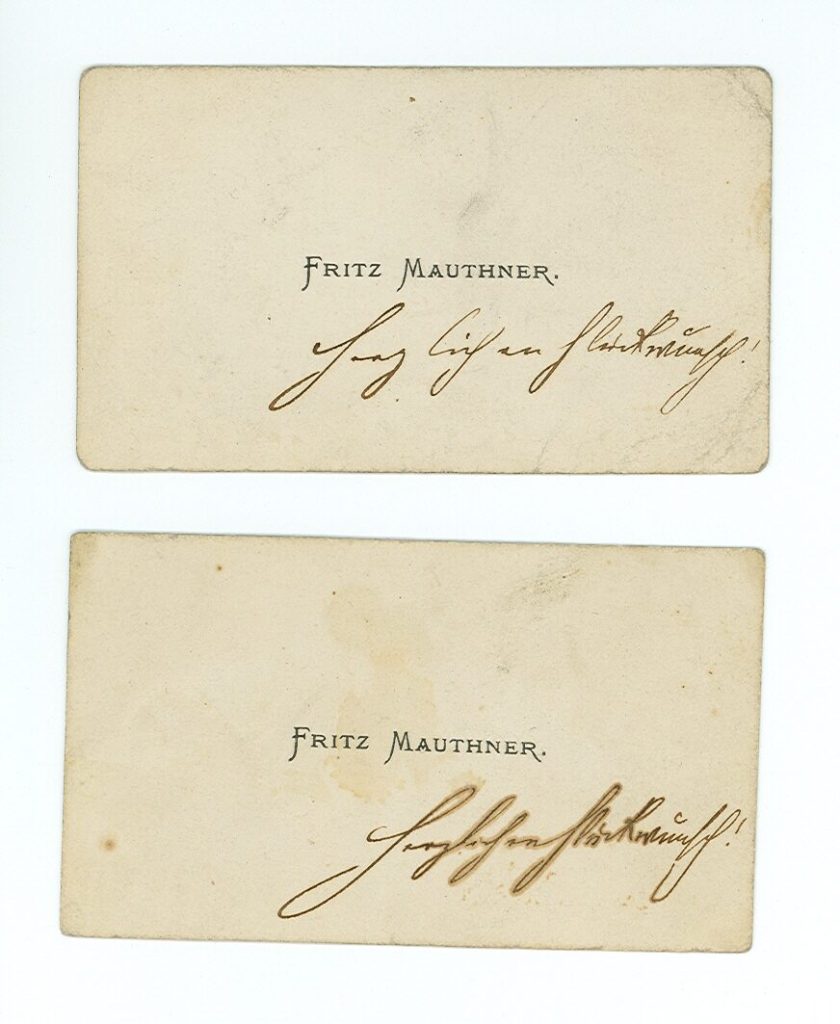 Fritz Mauthner.
Herzlichen Glückwunsch!
Fritz Mauthner.
Herzlichen Glückwunsch!